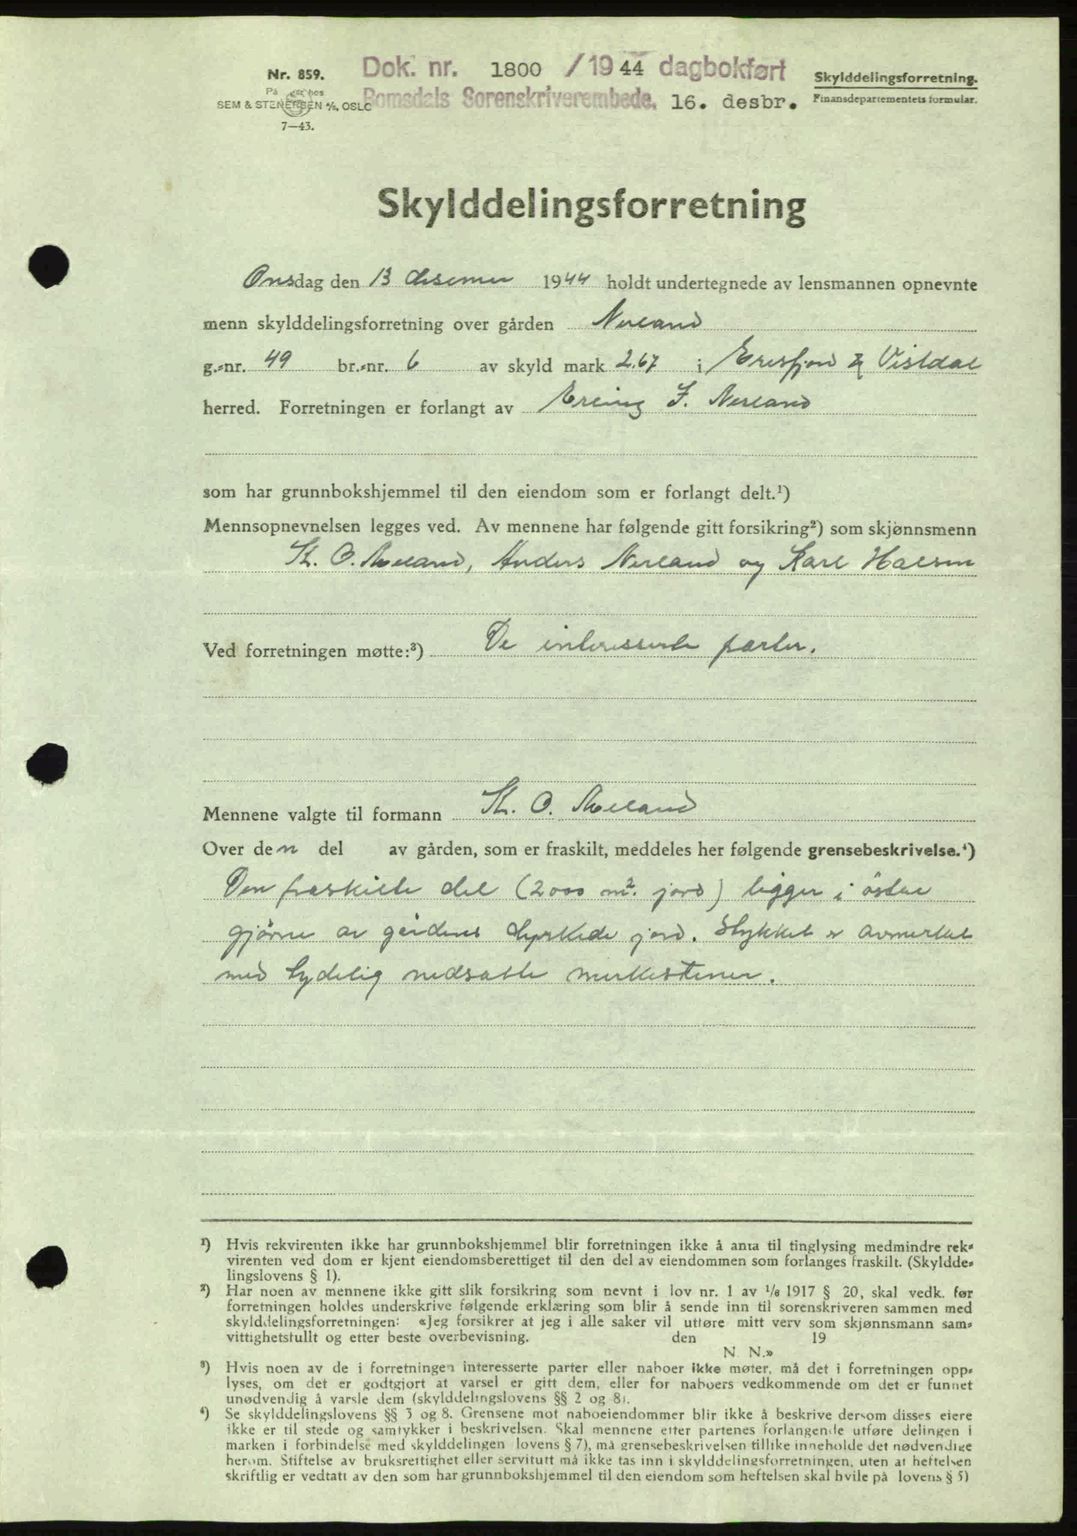 Nr. 859.
På lager hos
SEM & STENERSEN A/S, OSLO
7—43.
Dok. nr. 1800 /1944 dagbokført
Romsdals Sorenskriverembede, 16. desbr.
Skylddelingsforretning.
Finansdepartementets formular.
Skylddelingsforretning
Onsdag den 13 desemer 1944 holdt undertegnede av lensmannen opnevnte
menn skylddelingsforretning over gården Nerland
g.-nr. 49 br.-nr. 6 av skyld mark 2.67 i Eresfjord & Vistdal
herred. Forretningen er forlangt av Erling J. Nerland
som har grunnbokshjemmel til den eiendom som er forlangt delt.¹)
Mennsopnevnelsen legges ved. Av mennene har følgende gitt forsikring²) som skjønnsmenn
O. Meland, Anders Nerland og Karl Halsen
Ved forretningen møtte:³) De interesserte parter.
Mennene valgte til formann O. Meland
Over den del av gården, som er fraskilt, meddeles her følgende grensebeskrivelse.⁴)
Den fraskilte del (2000 m². jord) ligger i østre
gjörne av gårdens dyrkede jord. Stykket er avmerket
med tydelig nedsatte merkestener.
¹) Hvis rekvirenten ikke har grunnbokshjemmel blir forretningen ikke å anta til tinglysing medmindre rek-
virenten ved dom er kjent eiendomsberettiget til den del av eiendommen som forlanges fraskilt. (Skyldde-
lingslovens § 1).
²) Har noen av mennene ikke gitt slik forsikring som nevnt i lov nr. 1 av 1/6 1917 § 20, skal vedk. før
forretningen holdes underskrive følgende erklæring som blir å sende inn til sorenskriveren sammen med
skylddelingsforretningen: «Jeg forsikrer at jeg i alle saker vil utføre mitt verv som skjønnsmann sam-
vittighetsfullt og etter beste overbevisning. den 19
N. N.»
³) Hvis noen av de i forretningen interesserte parter eller naboer ikke møter, må det i forretningen opp-
lyses, om det er godtgjort at varsel er gitt dem, eller for naboers vedkommende om det er funnet
unødvendig å varsle dem (skylddelingslovens §§ 2 og 8).
⁴) Se skylddelingslovens §§ 3 og 8. Grensene mot naboeiendommer blir ikke å beskrive dersom disses eiere
ikke er til stede og samtykker i beskrivelsen. Skal mennene etter partenes forlangende utføre delingen i
marken i forbindelse med skylddelingen (lovens § 7), må grensebeskrivelsen tillike inneholde det nødvendige
herom. Stiftelse av bruksrettighet eller servitutt må ikke tas inn i skylddelingsforretningen, uten at heftelsen
skriftlig er vedtatt av den som har grunnbokshjemmel til den eiendom som heftelsen skal hvile på (lovens § 5)